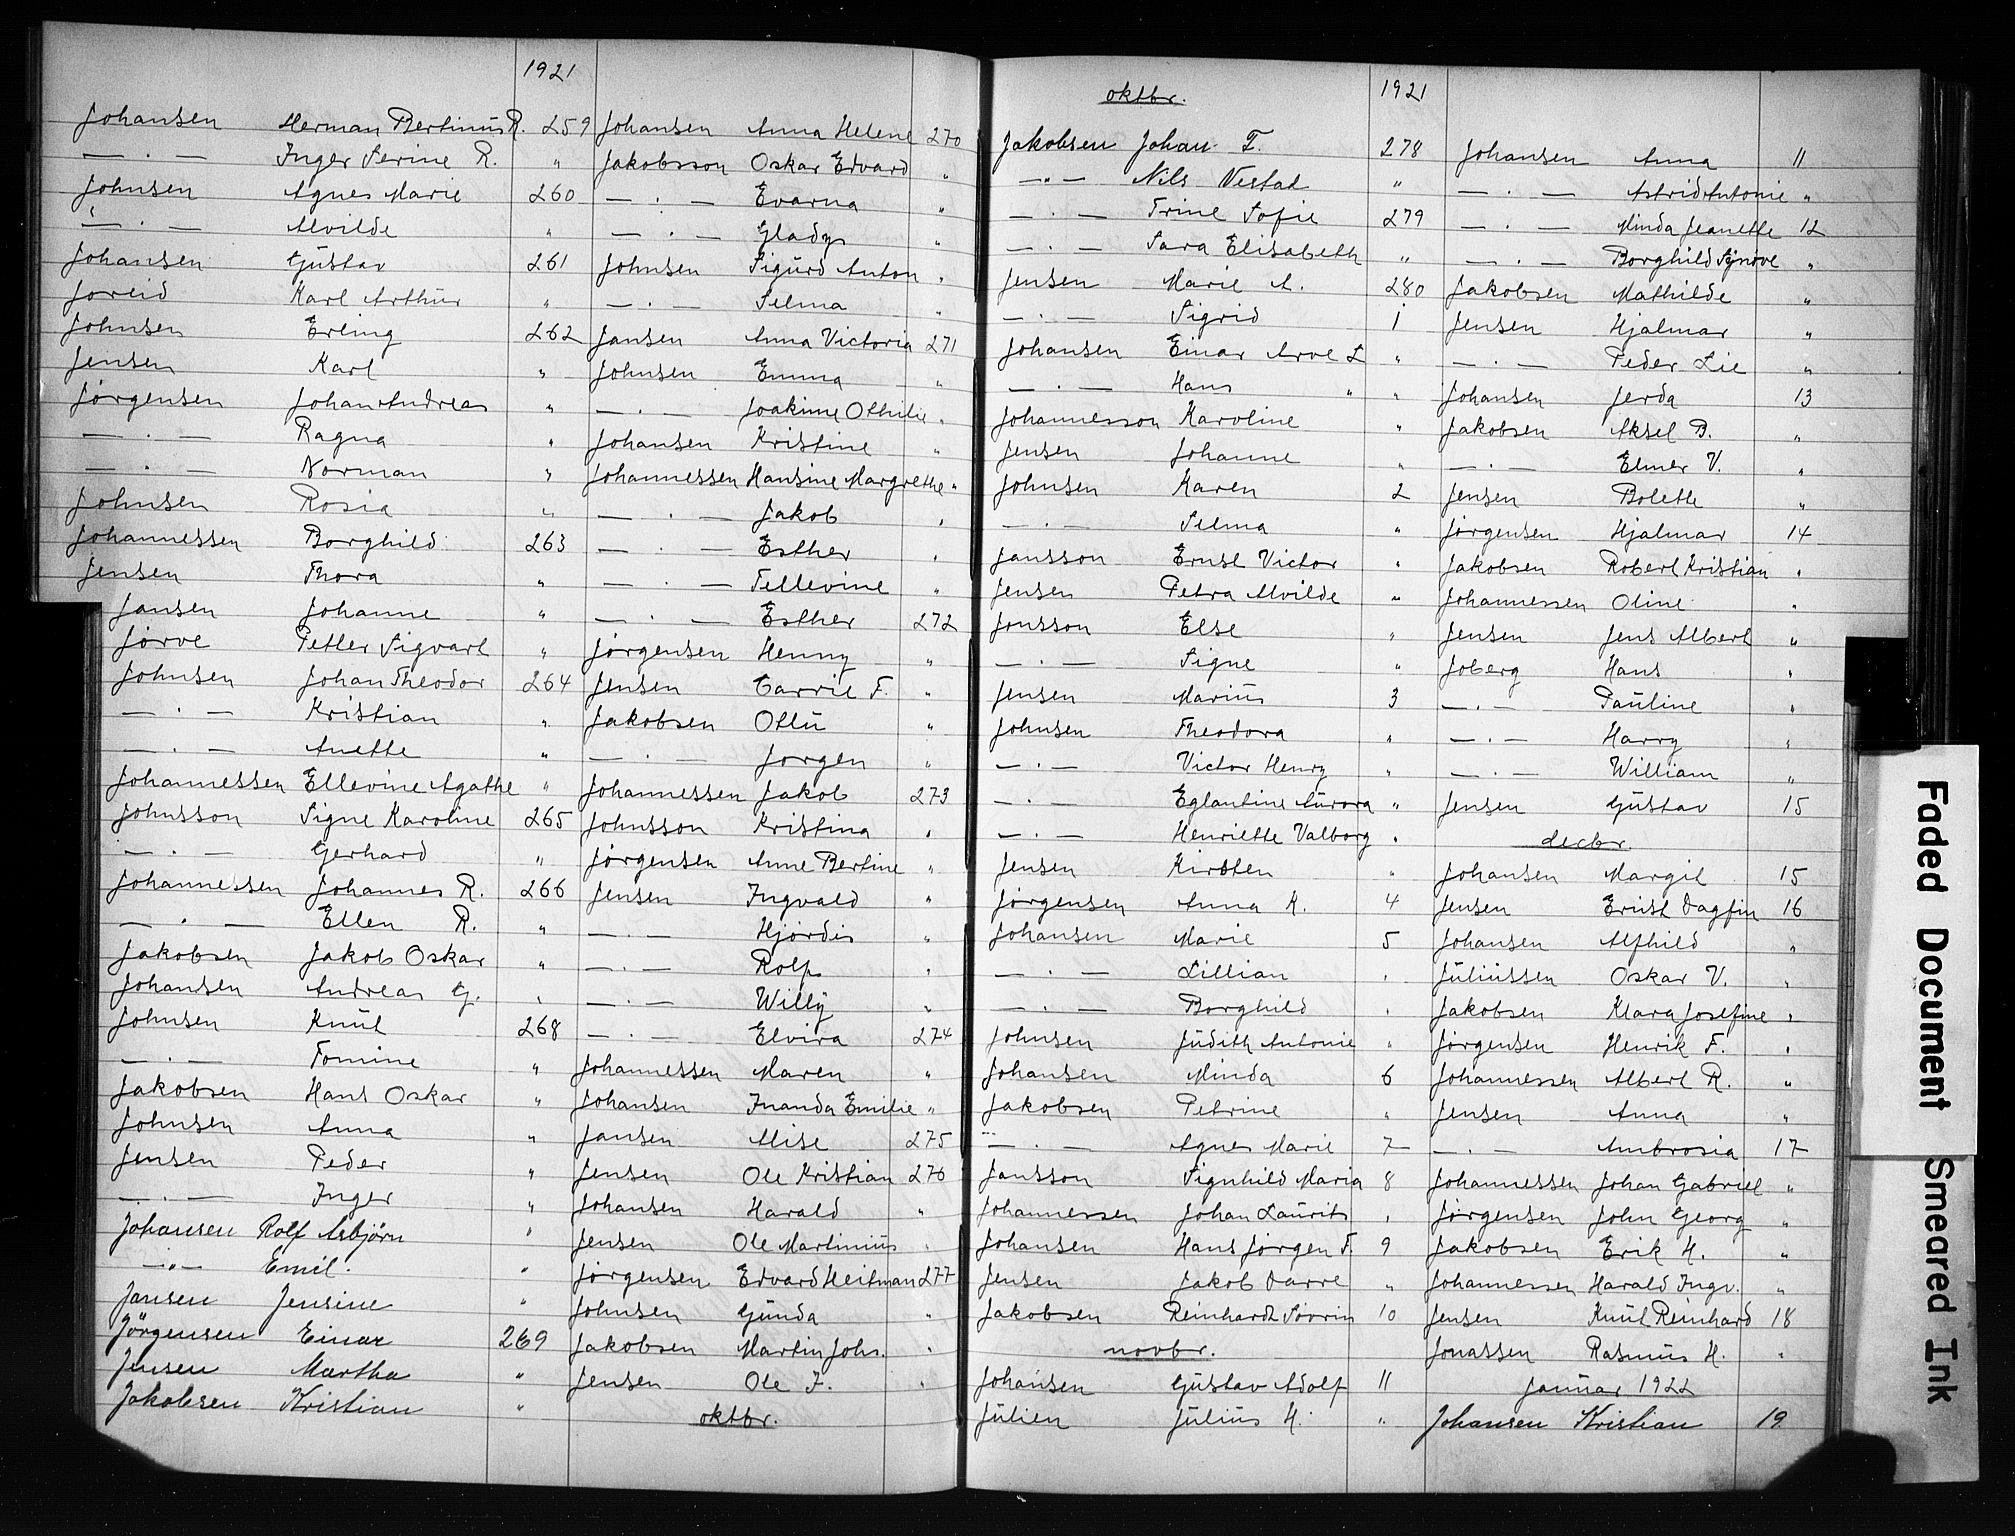 1921
Johansen Herman Bertinus R. 259
— . — Inger Serine R. "
Johnsen Agnes Marie 260
— . — Alvilde "
Johansen Gustav 261
Joreid Karl Arthur "
Johnsen Erling 262
Jensen Karl "
Jørgensen Johan Andreas "
— . — Ragna "
— . — Norman "
Johnsen Rosia "
Johannessen Borghild 263
Jensen Thora "
Jansen Johanne "
Jørve Petter Sigvart "
Johnsen Johan Theodor 264
— . — Kristian "
— . — Anette "
Johannessen Ellevine Agathe "
Johnsson Signe Karoline 265
— . — Gerhard "
Johannessen Johannes R. 266
— . — Ellen R. "
Jakobsen Jakob Oskar "
Johansen Andreas G. "
Johnsen Knut 268
— . — Tomine "
Jakobsen Hans Oskar "
Johnsen Anna "
Jensen Peder "
— . — Inger "
Johansen Rolf Asbjørn "
— " — Emil. "
Jansen Jensine "
Jörgensen Einar 269
Jensen Martha "
Jakobsen Kristian "
Johansen Anna Helene 270
Jakobsson Oskar Edvard "
— . — Evarna "
— . — Gladys "
Johnsen Sigurd Anton "
— . — Selma "
Jansen Anna Victoria 271
Johnsen Emma "
— . — Joakime Othilie "
Johansen Kristine "
Johannessen Hansine Margrethe "
— . — Jakob "
— . — Esther "
— . — Tellevine "
— . — Esther 272
Jørgensen Henny "
Jensen Carrie F. "
Jakobsen Otto "
— . — Jørgen "
Johannessen Jakob 273
Johnsson Kristina "
Jørgensen Anne Bertine "
Jensen Ingvald "
— . — Hjørdis "
— . — Rolf "
— . — Willy "
— . — Elvira 274
Johannessen Maren "
Johansen Inanda Emilie "
Jansen Alise 275
Jensen Ole Kristian 276
Johansen Harald "
Jensen Ole Martinius "
Jørgensen Edvard Heitman 277
Johnsen Gunda "
Jakobsen Martin Johs. "
Jensen Ole J. "
oktbr.
oktbr. 1921
Jakobsen Johan F. 278
— " — Nils Nestad "
— . — Trine Sofie 279
— . — Sara Elisabeth "
Jensen Marie A. 280
— . — Sigrid 1
Johansen Einar Arve L "
— . — Hans " "
Johannesson Karoline "
Jensen Johanne "
Johnsen Karen 2
— . — Selma "
Jansson Ernst Victor "
Jensen Petra Alvilde "
Jonsson Else "
— . — Signe "
Jensen Marius 3
Johnsen Theodora "
— . — Victor Henry "
— . — Eglantine Aurora "
— . — Henriette Valborg "
Jensen Kirsten "
Jørgensen Anna K. 4
Johansen Marie 5
— . — Lillian "
— . — Borghild "
Johnsen Judith Antonie "
Johansen Minda 6
Jakobsen Petrine "
— . — Agnes Marie 7
Jansson Signhild Maria 8
Johannessen Johan Laurits "
Johansen Hans Jørgen F. 9
Jensen Jakob Darre "
Jakobsen Reinhardt Sövrin 10
novbr.
Johansen Gustav Adolf 11
Julien Julius H. "
Johansen Anna 11
— . — Astrid Antonie "
— . — Minda Jeanette 12
— . — Borghild Synøve "
Jakobsen Mathilde "
Jensen Hjalmar "
— . — Peder Lie "
Johansen Jerda 13
Jakobsen Aksel B. "
— . — Elmer V. "
Jensen Bolette "
Jørgensen Hjalmar 14
Jakobsen Robert Kristian "
Johannessen Oline "
Jensen Jens Albert "
Joberg Hans "
— . — Pauline "
— . — Harry "
— . — William "
Jensen Gustav 15
decbr.
Johansen Margit 15
Jensen Ernst Dagfin 16
Johansen Alfhild "
Juliussen Oskar V. "
Jakobsen Klara Josefine "
Jørgensen Henrik F. "
Johannessen Albert R. "
Jensen Anna "
— . — Ambrosia 17
Johannessen Johan Gabriel "
Jørgensen John Georg "
Jakobsen Erik H. "
Johannessen Harald Ingv. "
Jensen Knut Reinhard 18
Jonassen Rasmus H. "
Januar 1922
Johansen Kristian 19.
Faded Document
Smeared Ink